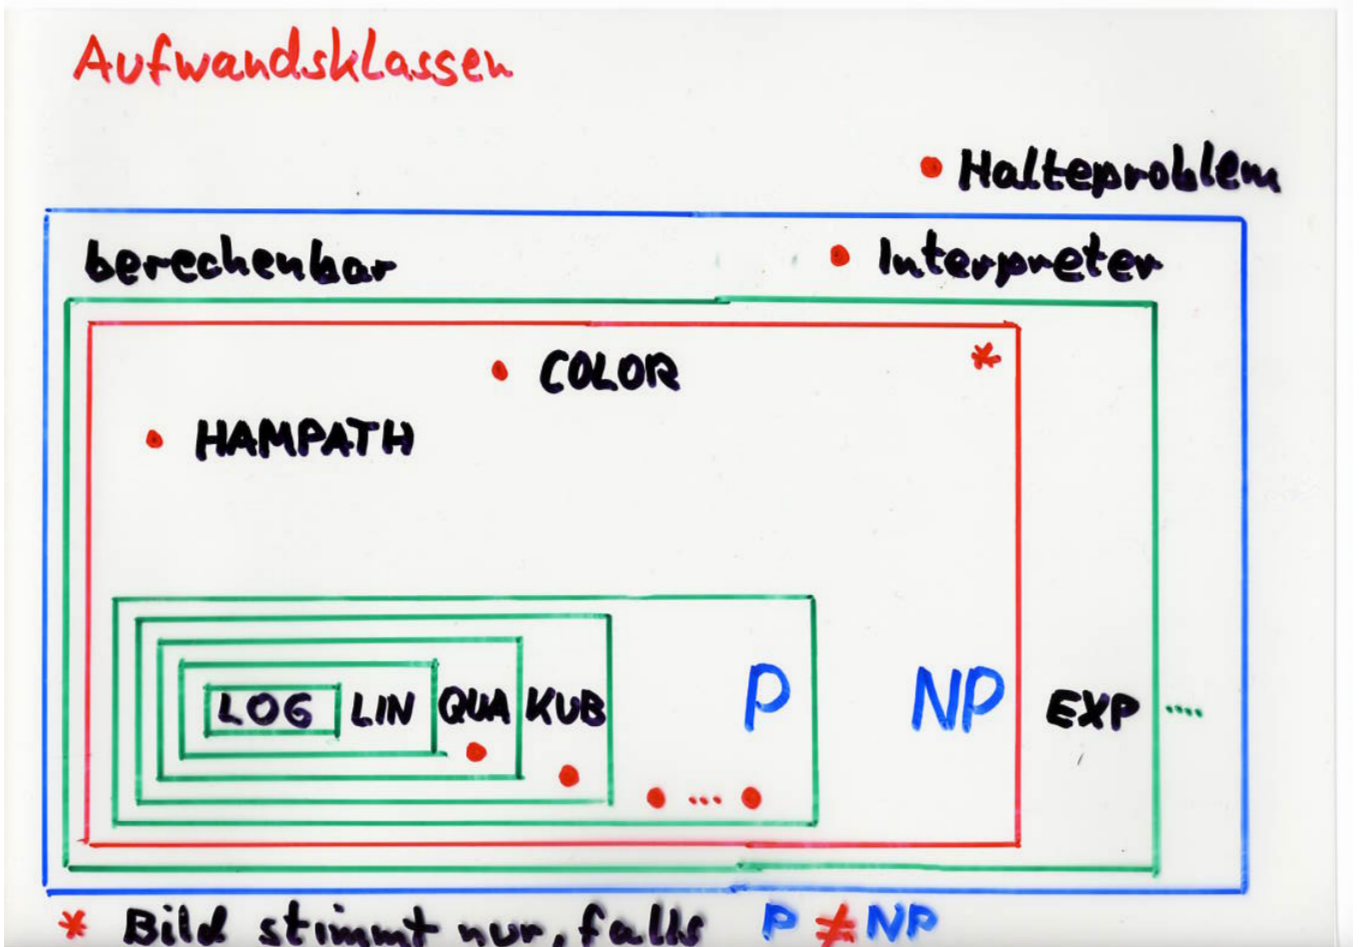 Aufwandsklassen
• Halteproblem
berechenbar • Interpreter
• COLOR *
• HAMPATH
LOG LIN QUA KUB P NP EXP ....
• ... •
* Bild stimmt nur, falls P ≠ NP